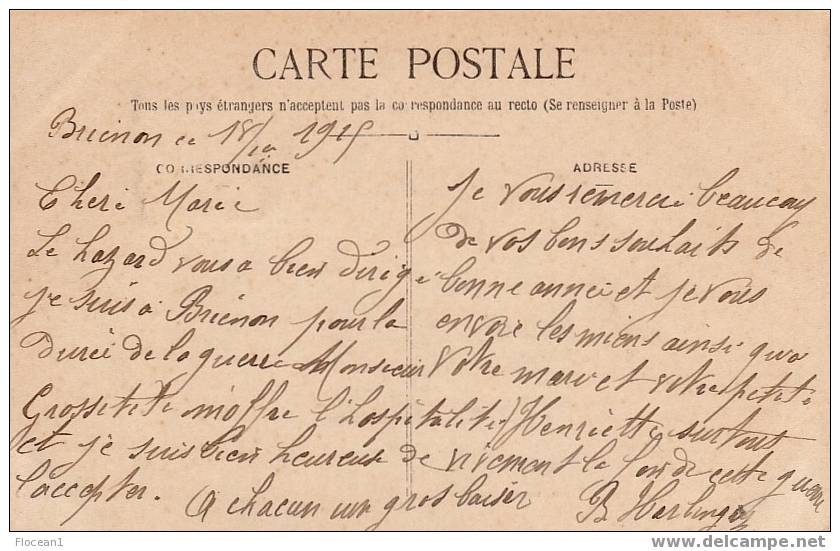 CARTE POSTALE
Tous les pays étrangers n'acceptent pas la correspondance au recto (Se renseigner à la Poste)
Brienon ce 18/1er 1915
CORRESPONDANCE
Cheri Marie
Le hazard vous a bien dirigé
je suis a Briénon pour la
durée de la guerre Monsieur
Grossetete m'offre l'hospitalité
et je suis bien heureuse de
l'accepter.
ADRESSE
Je vous remercie beaucoup
de vos bons souhaits de
bonne année et je vous
envoie les miens ainsi qu'a
votre mari et votre petite
Henriette surtout
vivement la fin de cette guerre
A chacun un gros baiser
B
Flocean1
delcampe.net